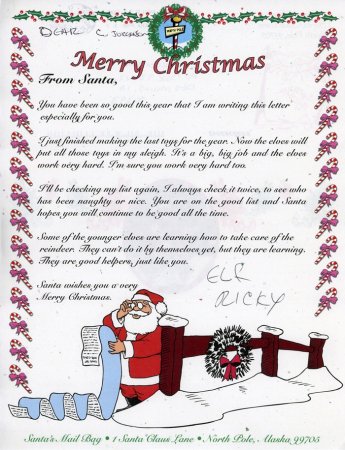 NORTH POLE
DEAR C JORGENSEN
Merry Christmas
From Santa,
You have been so good this year that I am writing this letter
especially for you.
I just finished making the last toys for the year. Now the elves will
put all those toys in my sleigh. It's a big, big job and the elves
work very hard. I'm sure you work very hard too.
I'll be checking my list again, I always check it twice, to see who
has been naughty or nice. You are on the good list and Santa
hopes you will continue to be good all the time.
Some of the younger elves are learning how to take care of the
reindeer. They can't do it by themselves yet, but they are learning.
They are good helpers, just like you.
Santa wishes you a very
Merry Christmas.
ELF
RICKY
Santa's Mail Bag • 1 Santa Claus Lane • North Pole, Alaska 99705